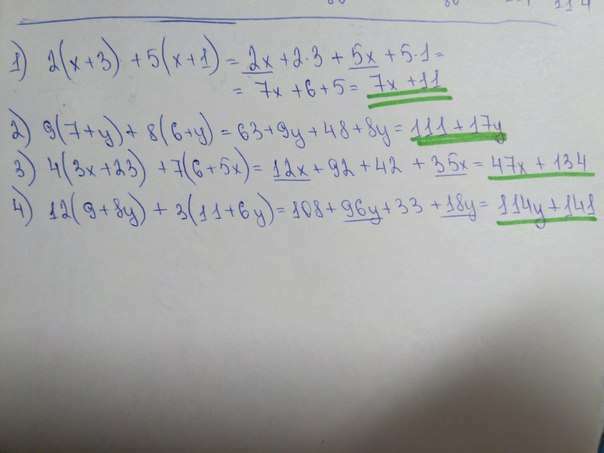 1) 2(x+3) + 5(x+1) = 2x + 2·3 + 5x + 5·1 =
= 7x + 6 + 5 = 7x + 11
2) 9(7+y) + 8(6+y) = 63 + 9y + 48 + 8y = 111 + 17y
3) 4(3x+23) + 7(6+5x) = 12x + 92 + 42 + 35x = 47x + 134
4) 12(9+8y) + 3(11+6y) = 108 + 96y + 33 + 18y = 114y + 141